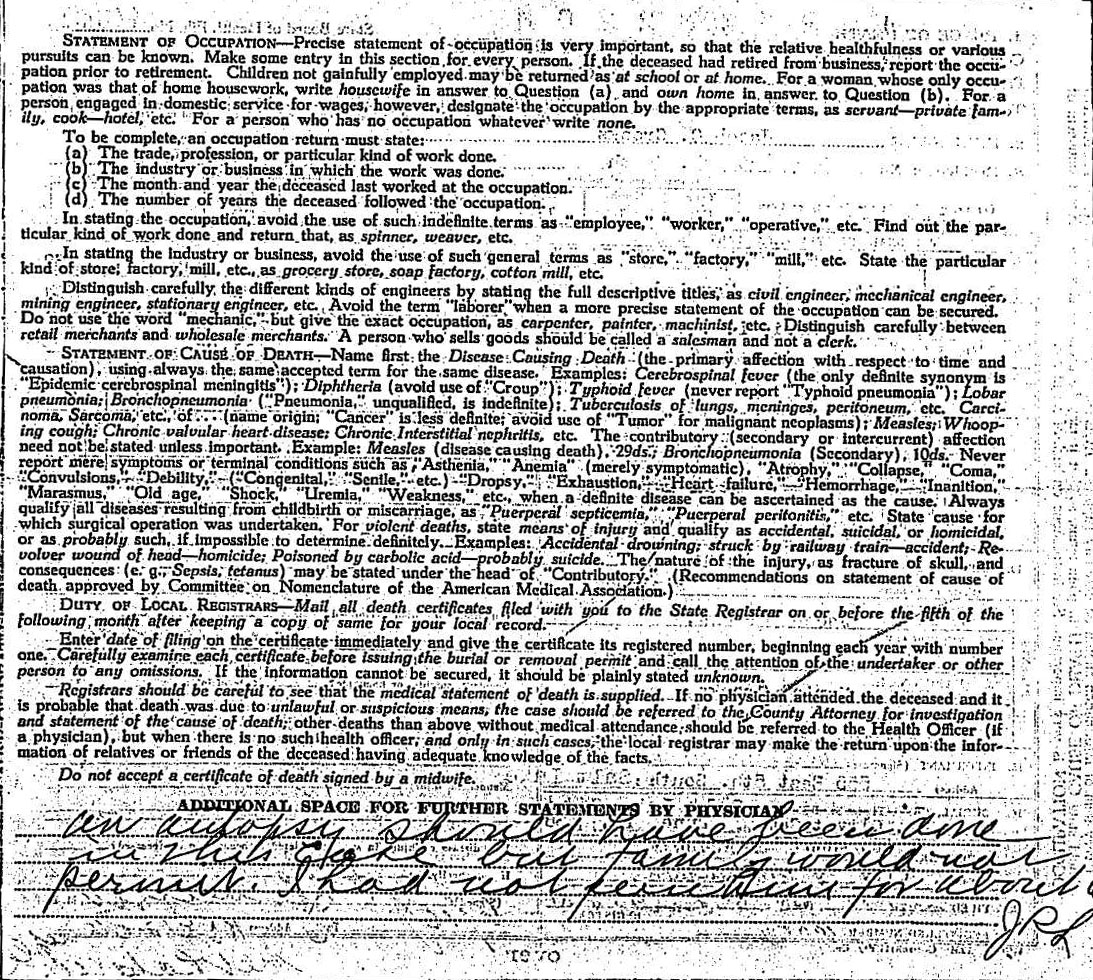 STATEMENT OF OCCUPATION—Precise statement of occupation is very important, so that the relative healthfulness or various
pursuits can be known. Make some entry in this section for every person. If the deceased had retired from business, report the occu-
pation prior to retirement. Children not gainfully employed may be returned as at school or at home. For a woman whose only occu-
pation was that of home housework, write housewife in answer to Question (a) and own home in answer to Question (b). For a
person engaged in domestic service for wages, however, designate the occupation by the appropriate terms, as servant—private fam-
ily, cook—hotel, etc. For a person who has no occupation whatever write none.
To be complete, an occupation return must state:
(a) The trade, profession, or particular kind of work done.
(b) The industry or business in which the work was done.
(c) The month and year the deceased last worked at the occupation.
(d) The number of years the deceased followed the occupation.
In stating the occupation, avoid the use of such indefinite terms as "employee," "worker," "operative," etc. Find out the par-
ticular kind of work done and return that, as spinner, weaver, etc.
In stating the industry or business, avoid the use of such general terms as "store," "factory," "mill," etc. State the particular
kind of store, factory, mill, etc., as grocery store, soap factory, cotton mill, etc.
Distinguish carefully the different kinds of engineers by stating the full descriptive titles, as civil engineer, mechanical engineer,
mining engineer, stationary engineer, etc. Avoid the term "laborer" when a more precise statement of the occupation can be secured.
Do not use the word "mechanic," but give the exact occupation, as carpenter, painter, machinist, etc. Distinguish carefully between
retail merchants and wholesale merchants. A person who sells goods should be called a salesman and not a clerk.
STATEMENT OF CAUSE OF DEATH—Name first the Disease Causing Death (the primary affection with respect to time and
causation), using always the same accepted term for the same disease. Examples: Cerebrospinal fever (the only definite synonym is
"Epidemic cerebrospinal meningitis"); Diphtheria (avoid use of "Croup"); Typhoid fever (never report "Typhoid pneumonia"); Lobar
pneumonia; Bronchopneumonia ("Pneumonia," unqualified, is indefinite); Tuberculosis of lungs, meninges, peritoneum, etc. Carci-
noma, Sarcoma, etc., of .... (name origin; "Cancer" is less definite; avoid use of "Tumor" for malignant neoplasms); Measles; Whoop-
ing cough; Chronic valvular heart disease; Chronic Interstitial nephritis, etc. The contributory (secondary or intercurrent) affection
need not be stated unless important. Example: Measles (disease causing death), 29ds.; Bronchopneumonia (Secondary), 10ds. Never
report mere symptoms or terminal conditions such as "Asthenia," "Anemia" (merely symptomatic), "Atrophy," "Collapse," "Coma,"
"Convulsions," "Debility," ("Congenital," "Senile," etc.) "Dropsy," "Exhaustion," "Heart failure," "Hemorrhage," "Inanition,"
"Marasmus," "Old age," "Shock," "Uremia," "Weakness," etc., when a definite disease can be ascertained as the cause. Always
qualify all diseases resulting from childbirth or miscarriage, as "Puerperal septicemia," "Puerperal peritonitis," etc. State cause for
which surgical operation was undertaken. For violent deaths, state means of injury and qualify as accidental, suicidal, or homicidal,
or as probably such, if impossible to determine definitely. Examples: Accidental drowning; struck by railway train—accident; Re-
volver wound of head—homicide; Poisoned by carbolic acid—probably suicide. The nature of the injury, as fracture of skull, and
consequences (e. g., Sepsis, tetanus) may be stated under the head of "Contributory." (Recommendations on statement of cause of
death approved by Committee on Nomenclature of the American Medical Association.)
DUTY OF LOCAL REGISTRARS—Mail all death certificates filed with you to the State Registrar on or before the fifth of the
following month after keeping a copy of same for your local record.
Enter date of filing on the certificate immediately and give the certificate its registered number, beginning each year with number
one. Carefully examine each certificate before issuing the burial or removal permit and call the attention of the undertaker or other
person to any omissions. If the information cannot be secured, it should be plainly stated unknown.
Registrars should be careful to see that the medical statement of death is supplied. If no physician attended the deceased and it
is probable that death was due to unlawful or suspicious means, the case should be referred to the County Attorney for investigation
and statement of the cause of death; other deaths than above without medical attendance should be referred to the Health Officer (if
a physician), but when there is no such health officer, and only in such cases, the local registrar may make the return upon the infor-
mation of relatives or friends of the deceased having adequate knowledge of the facts.
Do not accept a certificate of death signed by a midwife.
ADDITIONAL SPACE FOR FURTHER STATEMENTS BY PHYSICIAN
an autopsy should have been done
in this case but family would not
permit. I had not seen him for about
JRL